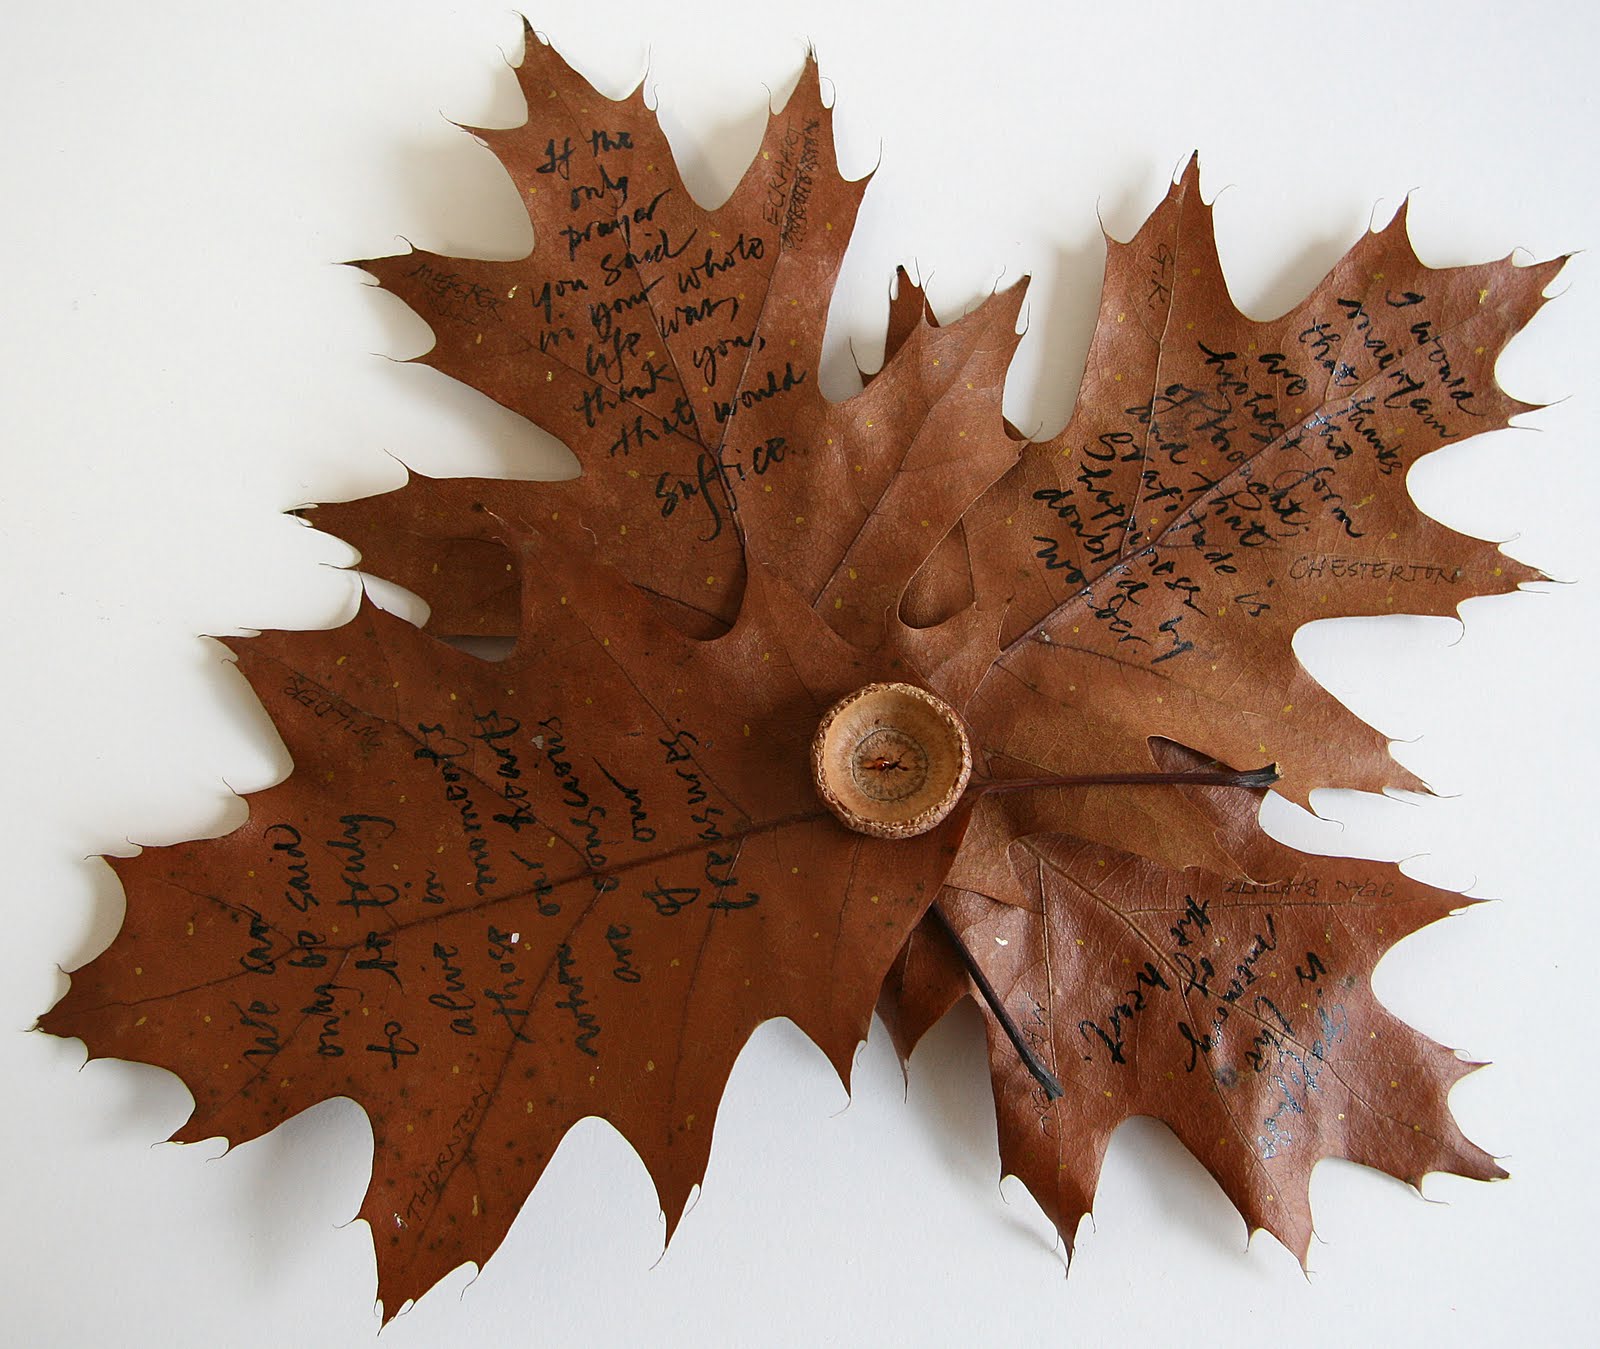 If the
only
prayer
you said
in your whole
life was,
thank you,
that would
suffice.
MEISTER
ECKHART
I would
maintain
that thanks
are the
highest form
of thought;
and that
gratitude is
happiness
doubled by
wonder.
G.K.
CHESTERTON
We can
only be said
to be truly
alive in
those moments
when our hearts
are conscious
of our
treasures.
THORNTON
WILDER
Gratitude
is the
memory
of the
heart.
JEAN BAPTISTE